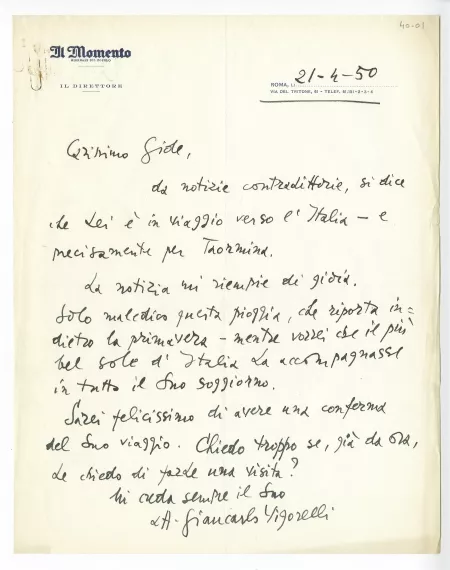 40-01
Il Momento
IL DIRETTORE
ROMA, lì 21-4-50
VIA DEL TRITONE, 61 - TELEF.
Carissimo Gide,
da notizie contraddittorie, si dice
che Lei è in viaggio verso l'Italia - e
precisamente per Taormina.
La notizia mi riempie di gioia.
Solo maledico questa pioggia, che riporta in=
dietro la primavera - mentre vorrei che il più
bel sole d'Italia La accompagnasse
in tutto il Suo soggiorno.
Sarei felicissimo di avere una conferma
del Suo viaggio. Chiedo troppo se, già da ora,
Le chiedo di farLe una visita?
Mi creda sempre il Suo
Giancarlo Vigorelli